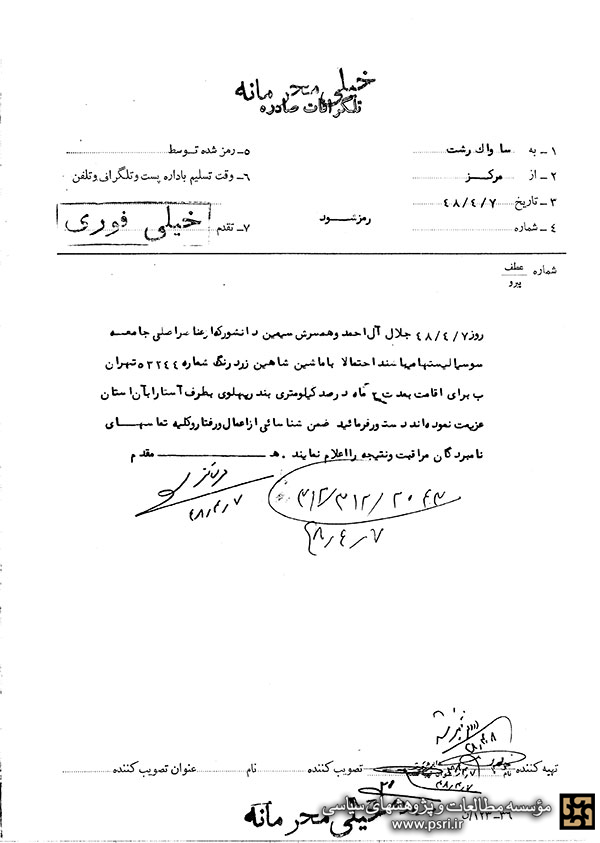 خیلی محرمانه
تلگرافات صادره
۱ـ به ساواك رشت
۲ـ از مرکز
۳ـ تاریخ ۴۸/۴/۷
۴ـ شماره
رمز شود
۵ـ رمز شده توسط
۶ـ وقت تسلیم باداره پست و تلگرانی و تلفن
۷ـ تقدم خیلی فوری
شماره عطف
پیرو
روز ۴۸/۴/۷ جلال آل احمد و همسرش سیمین دانشور که از عناصر اصلی جامعه
سوسیالیستها میباشند احتمالا با ماشین شاهین زرد رنگ شماره ۵۳۲۴۴ تهران
ب برای اقامت بمدت ۲ ماه در صد کیلومتری بندر پهلوی بطرف آستارا بآن استان
عزیمت نموده اند دستور فرمائید ضمن شناسائی از اعمال و رفتار و کلیه تماسهای
نامبردگان مراقبت و نتیجه را اعلام نمایند . هـ مقدم
۴۸/۴/۷
۳۱۲/۳۱۲/۲۰۴۳
۴۸/۴/۷
تهیه کننده نام تصویب کننده نام عنوان تصویب کننده
خیلی محرمانه
مؤسسه مطالعات و پژوهشهای سیاسی
www.psri.ir